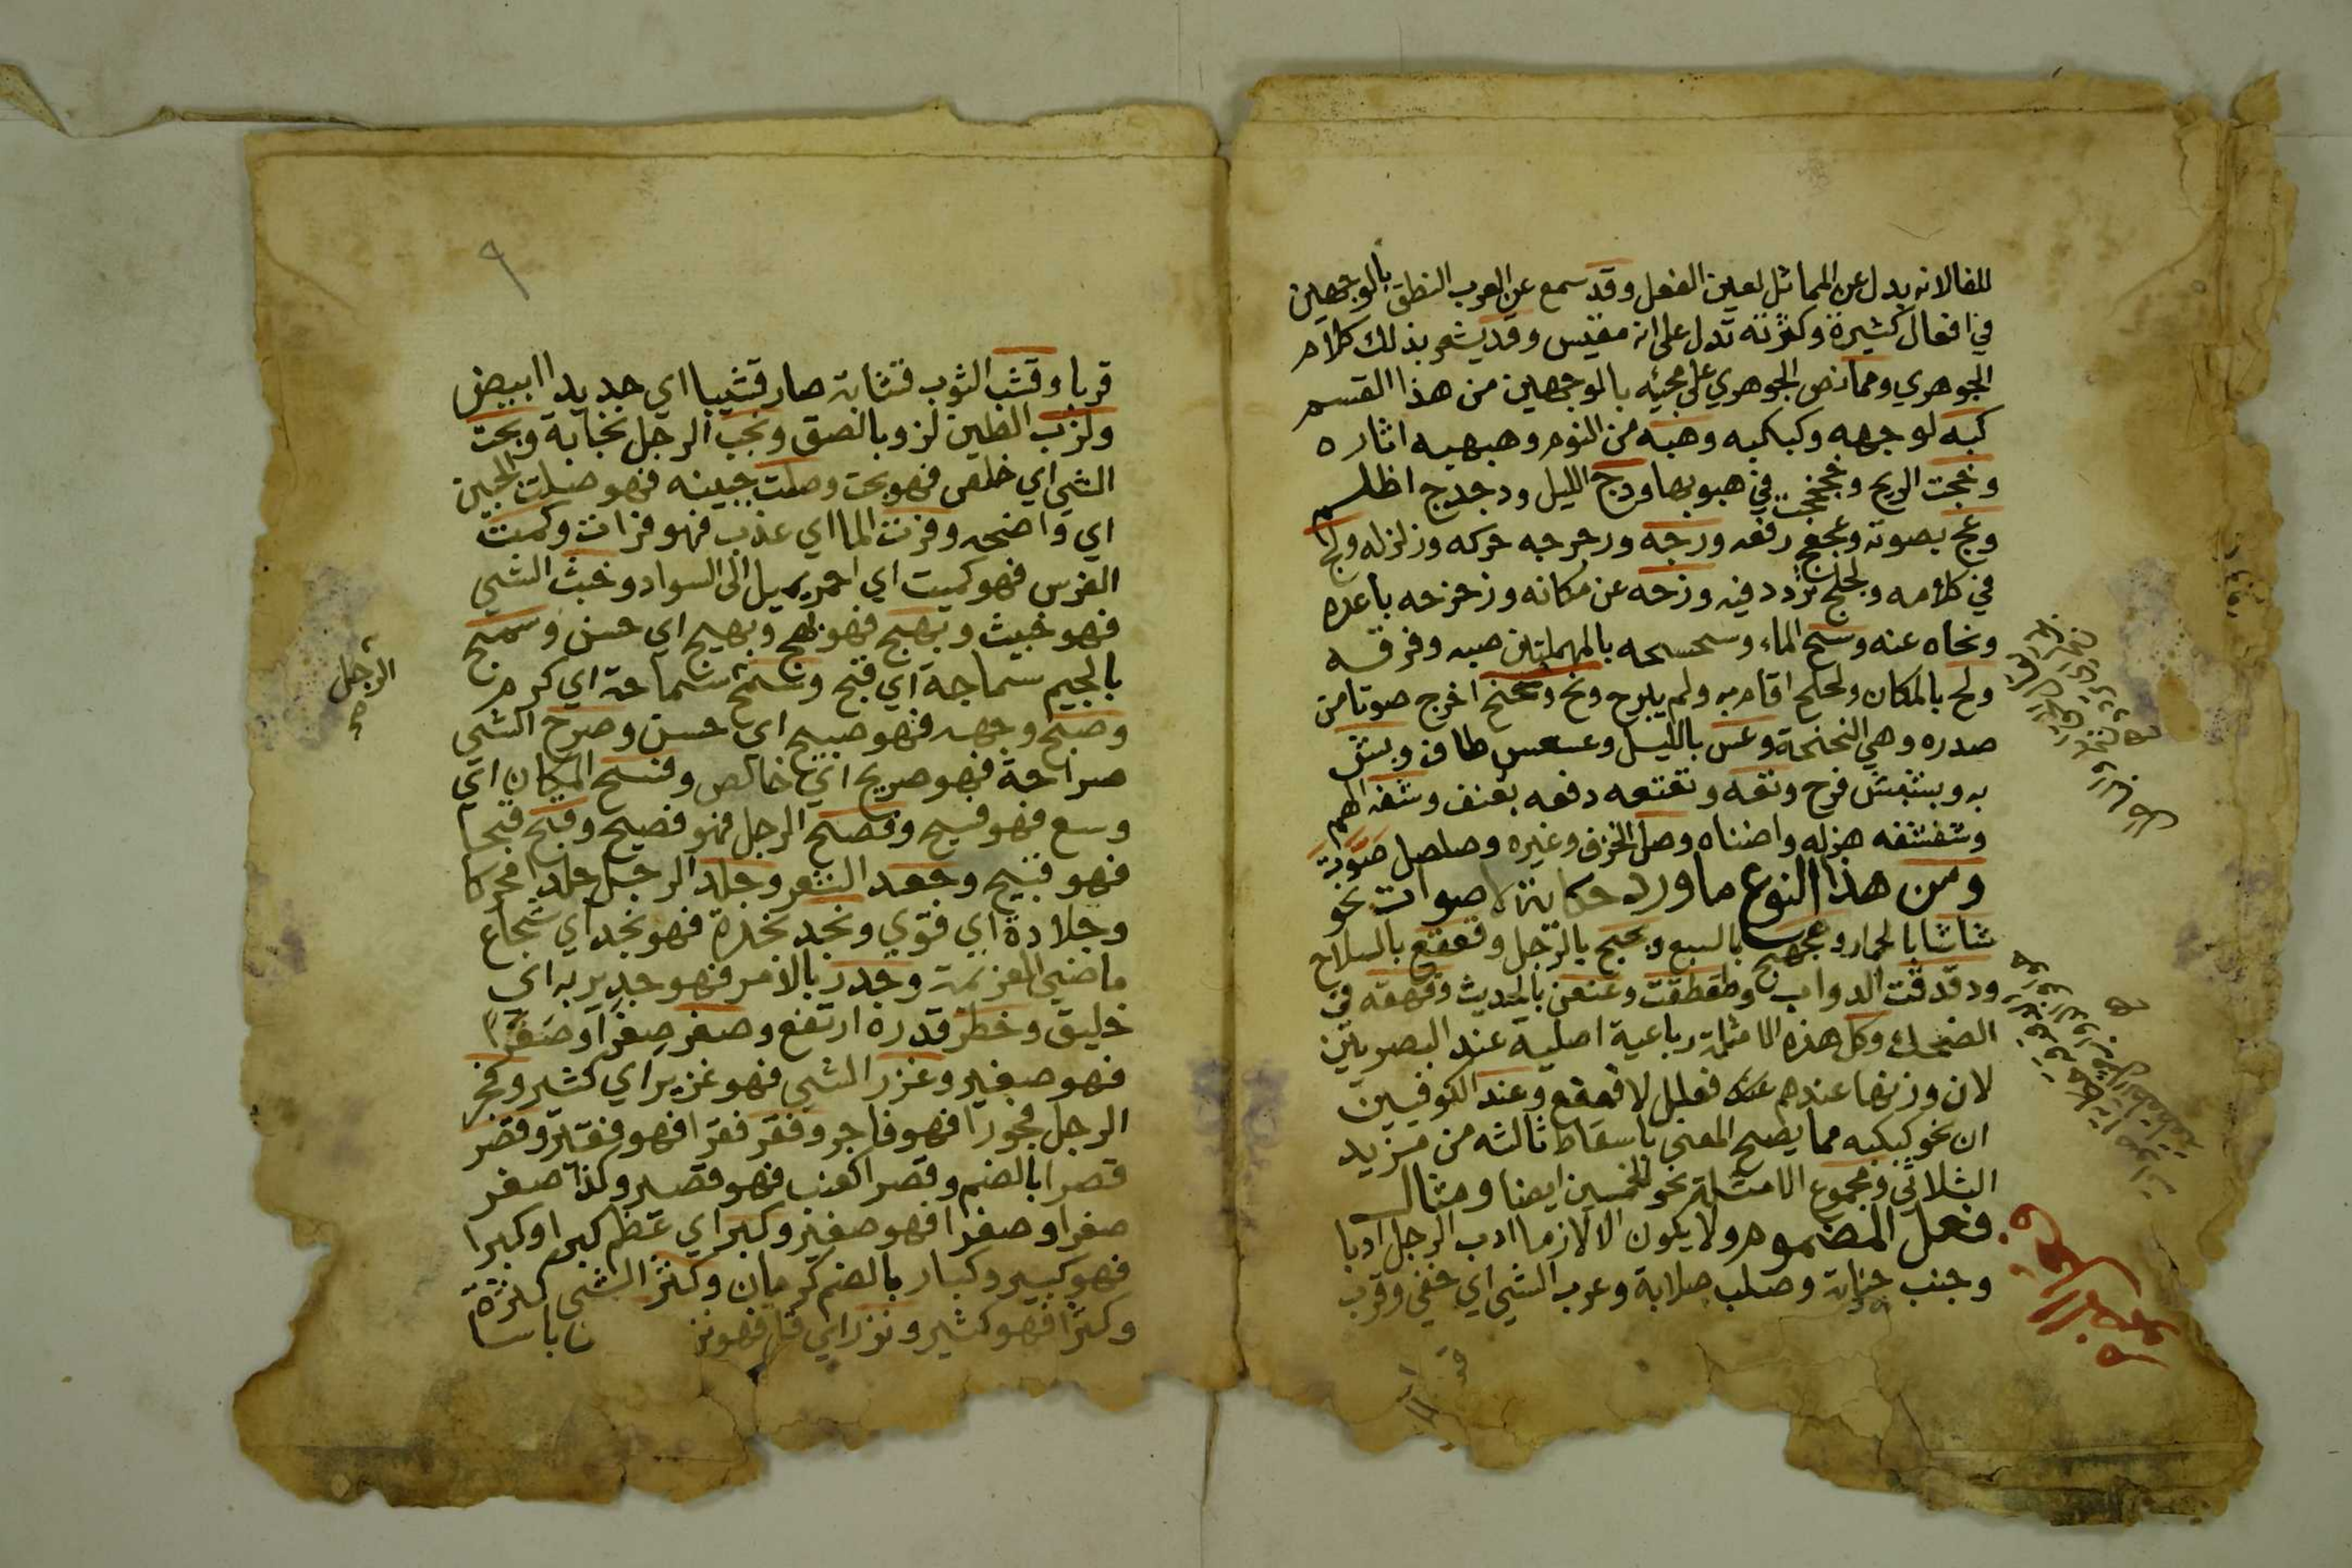 للفا لانه بدل عن المماثل لعين الفعل وقد سمع عن العرب النطق بالوجهين
في افعال كثيرة وكثرته تدل على انه مقيس وقد يشعر بذلك كلام
الجوهري ومما نص الجوهري على مجيئه بالوجهين من هذا القسم
كبه لوجهه وكبكبه وهبه من النوم وهبهبه اثاره
وخجت الريح وخجخجت في هبوبها ودج الليل ودجدج اظلم
وعج بصوته وعجعج رفعه ورجه ورجرجه حركه وزلزله ولج
في كلامه ولجلج تردد فيه وزحه عن مكانه وزحزحه باعده
ونحاه عنه وسح الماء وسحسحه بالمهملتين صبه وفرقه
ولح بالمكان ولحلح اقام به ولم يبرح ونح ونحنح اخرج صوتا من
صدره وهي النحنحة وعس بالليل وعسعس طاف وبش
به وبشبش فرح وتعه وتعتعه دفعه بعنف وشفه الهم
وشفشفه هزله واضناه وصل الخزف وغيره وصلصل صوت
ومن هذا النوع ما ورد حكاية لاصوات نحو
شاشا بالحمار وهجهج بالسبع وبجبج بالرجل وقعقع بالسلاح
ودقدقت الدواب وطقطقت وعنعن بالحديث وقهقه في
الضحك وكل هذه الامثلة رباعية اصلية عند البصريين
لان وزنها عندهم فعلل لا فعفع وعند الكوفيين
ان نحو كبكبه مما يصح المعنى باسقاط ثالثه من مزيد
الثلاثي ومجموع الامثلة نحو الخمسين ايضا ومثال
فعل المضموم ولا يكون الا لازما ادب الرجل ادبا
وجنب جنابة وصلب صلابة وعرب الشي اي خفي وقرب
٩
قربا وقشب الثوب قشابة صار قشيبا اي جديدا ابيض
ولزب الطين لزوبا لصق ونجب الرجل نجابة وبحت
الشي اي خلص فهو بحت وصلت جبينه فهو صلت الجبين
اي واضحه وفرت الما اي عذب فهو فرات وكمت
الفرس فهو كميت اي احمر يميل الى السواد وخبث الشي
فهو خبيث وبهج فهو بهج وبهيج اي حسن وسمج
بالجيم سماجة اي قبح وسمح سماحة اي كرم
الرجل
وصبح وجهه فهو صبيح اي حسن وصرح الشي
صراحة فهو صريح اي خالص وفسح المكان اي
وسع فهو فسيح وفصح الرجل فهو فصيح وقبح قبحا
فهو قبيح وجعد الشعر وجلد الرجل جلدا محركا
وجلادة اي قوي ونجد نجدة فهو نجد اي شجاع
ماضي العزيمة وجدر بالامر فهو جدير به اي
خليق وخطر قدره ارتفع وصغر صغرا وصغرا
فهو صغير وغزر الشي فهو غزير اي كثير وفجر
الرجل فجورا فهو فاجر وفقر فقرا فهو فقير وقصر
قصرا بالضم وقصرا كعنب فهو قصير وكذا صغر
صغرا وصغرا فهو صغير وكبر اي عظم كبرا وكبرا
فهو كبير وكبار بالضم كرمان وكثر الشي كثرة
وكثرا فهو كثير ونزر اي قل فهو نز باسا